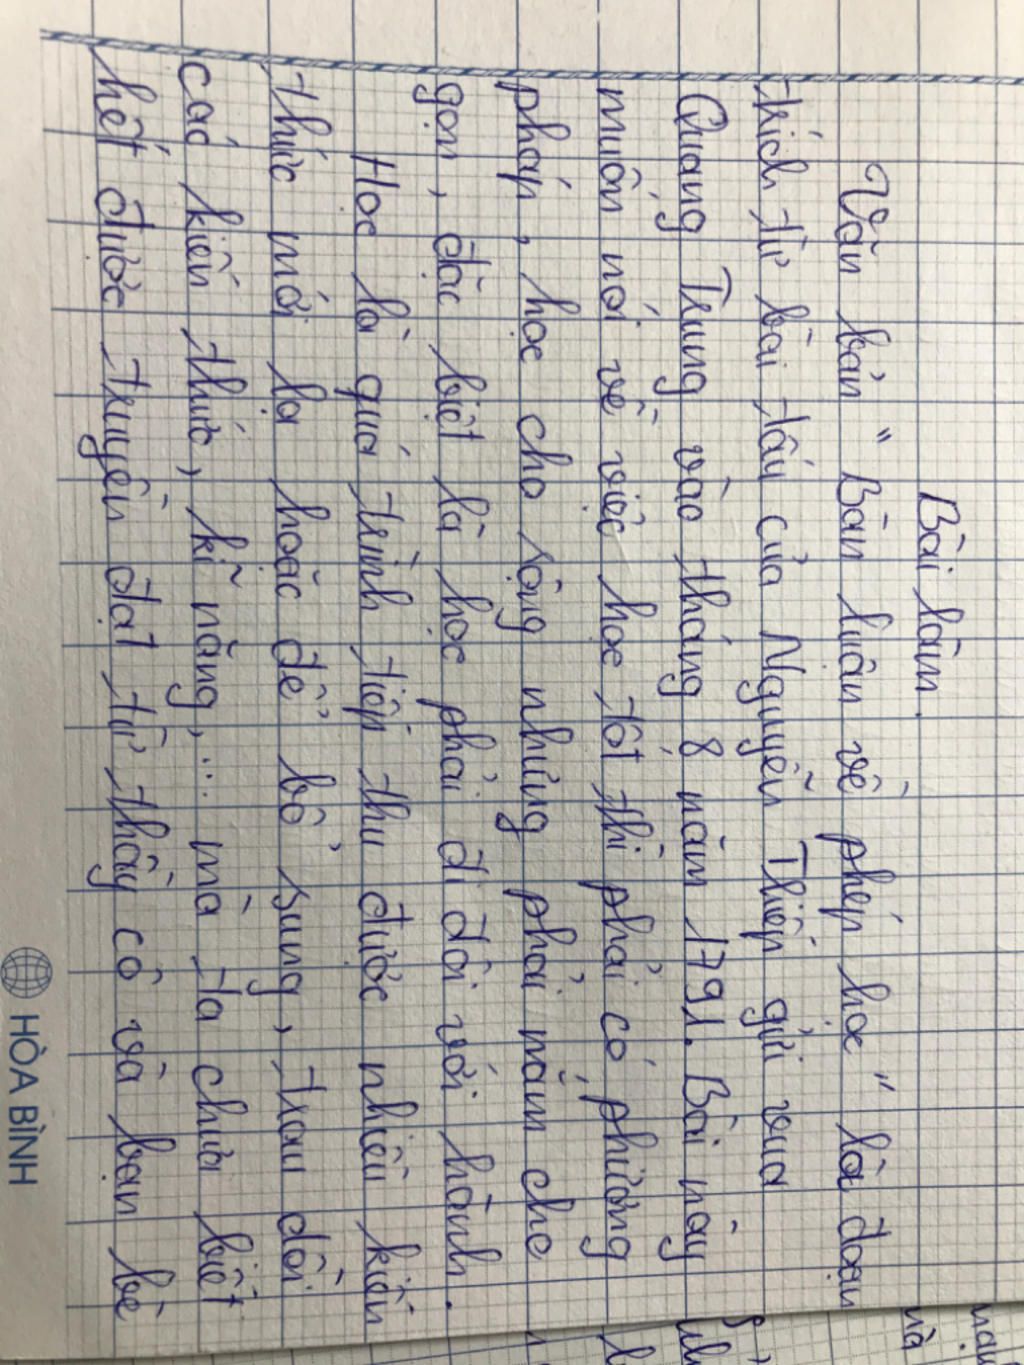 Bài làm.
Văn bản "Bàn luận về phép học" là đoạn
trích từ bài tấu của Nguyễn Thiếp gửi vua
Quang Trung vào tháng 8 năm 1791. Bài này
muốn nói về việc học tốt thì phải có phương
pháp, học cho rộng nhưng phải nắm cho
gọn, đặc biệt là học phải đi đôi với hành.
Học là quá trình tiếp thu được nhiều kiến
thức mới lạ hoặc để bổ sung, trau dồi
các kiến thức, kĩ năng,... mà ta chưa biết
hết được truyền đạt từ thầy cô và bạn bè
HÒA BÌNH